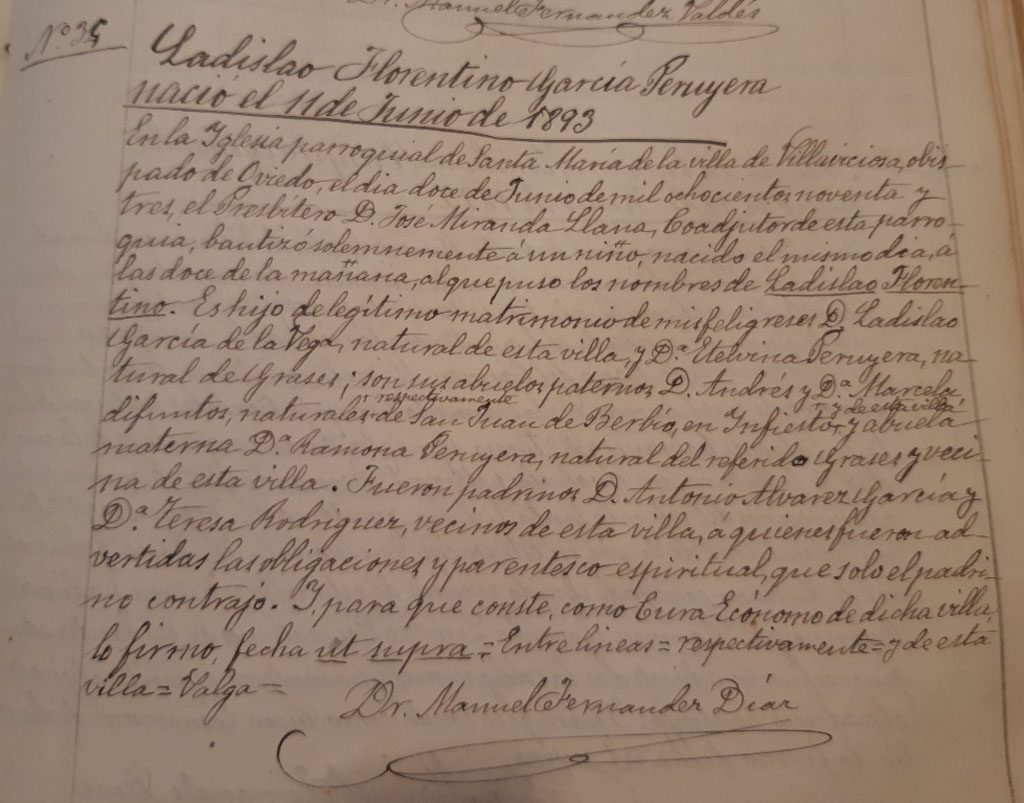 Dr. Manuel Fernandez Valdés
Nº 35
Ladislao Florentino García Peruyera
nació el 11 de Junio de 1893
En la Iglesia parroquial de Santa María de la villa de Villaviciosa, obis-
pado de Oviedo, el dia doce de Junio de mil ochocientos noventa y
tres, el Presbitero D. José Miranda Llana, Coadjutor de esta parro-
quia, bautizó solemnemente á un niño, nacido el mismo dia, á
las doce de la mañana, al que puso los nombres de Ladislao Floren-
tino. Es hijo de legítimo matrimonio de mis feligreses D. Ladislao
García de la Vega, natural de esta villa, y Dª. Etelvina Peruyera, na-
tural de Grases; son sus abuelos paternos D. Andrés y Dª. Marcela
respectivamente
y de esta villa
difuntos, naturales de San Juan de Berbío, en Infiesto, y abuela
materna Dª. Ramona Peruyera, natural del referido Grases y veci-
na de esta villa. Fueron padrinos D. Antonio Alvarez García y
Dª. Teresa Rodriguez, vecinos de esta villa, á quienes fueron ad-
vertidas las obligaciones y parentesco espiritual, que solo el padri-
no contrajo. Y, para que conste, como Cura Ecónomo de dicha villa,
lo firmo, fecha ut supra = Entre lineas = respectivamente = y de esta
villa = Valga =
Dr. Manuel Fernandez Díaz